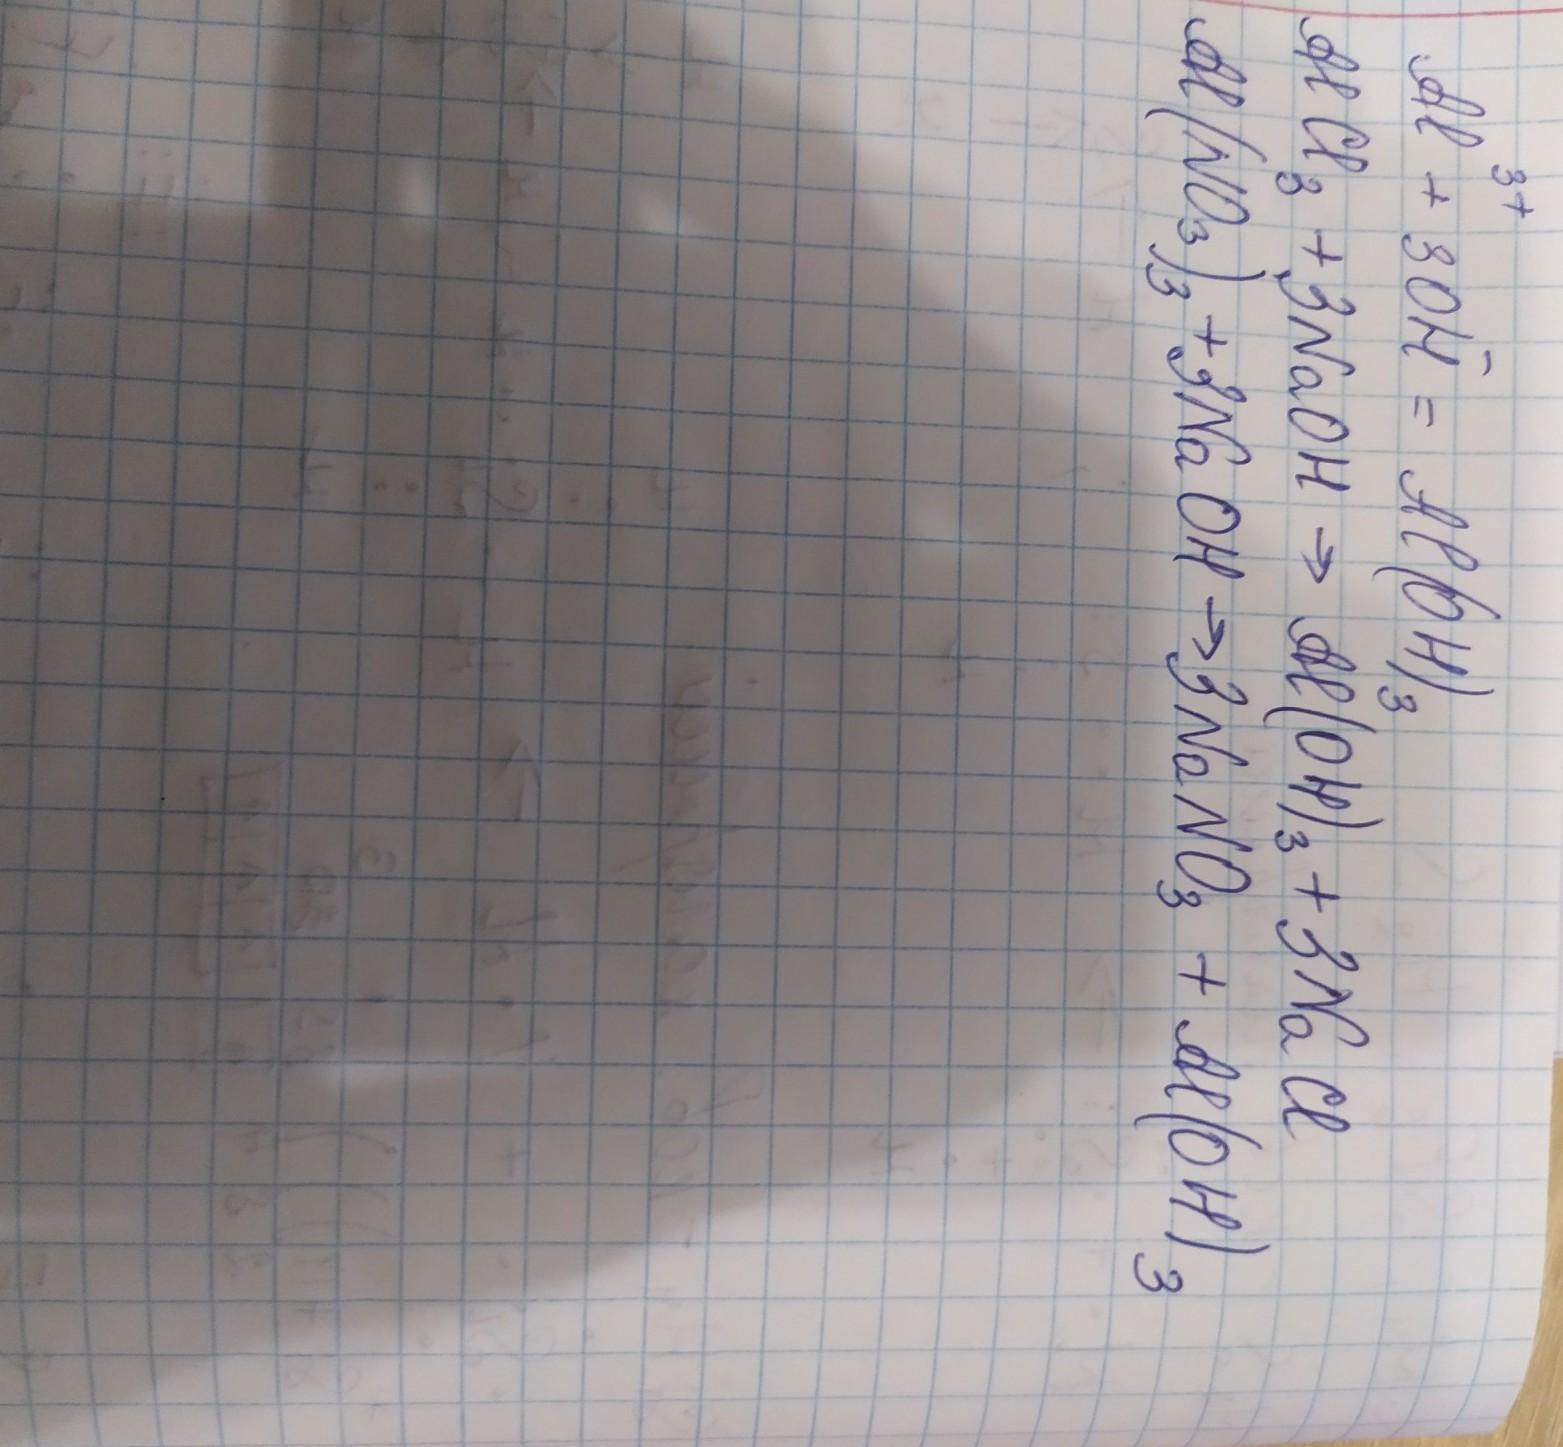 Al³⁺ + 3OH⁻ = Al(OH)₃
AlCl₃ + 3NaOH → Al(OH)₃ + 3NaCl
Al(NO₃)₃ + 3NaOH → 3NaNO₃ + Al(OH)₃